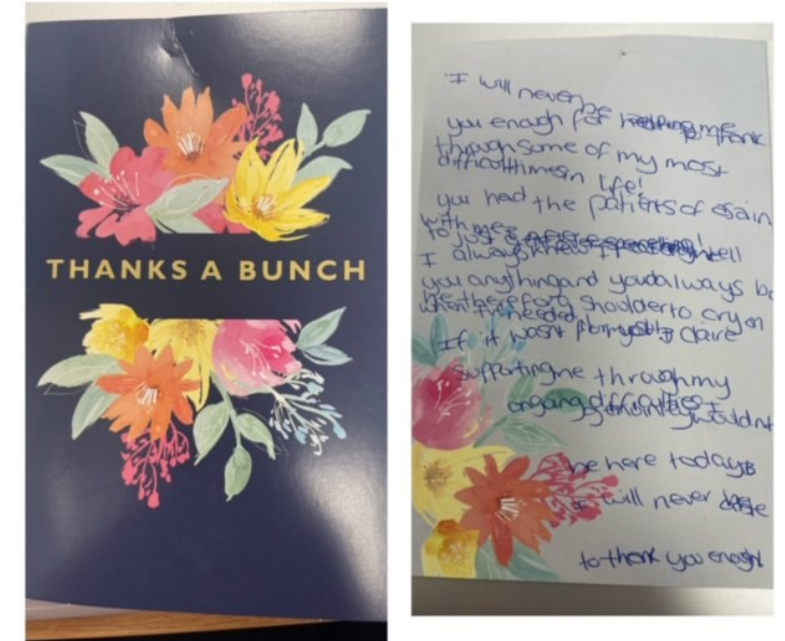 THANKS A BUNCH
I will never be
you enough for thank
through some of my most
difficult times in life!
you had the patients of a sain
with me
to just
I always knew I tell
you anything and you'd always be
be there for a shoulder to cry on
when I've needed
If it wasn't for you & Claire
supporting me through my
ongoing difficulties I
genuinely wouldn't
be here today
I will never be able
to thank you enough